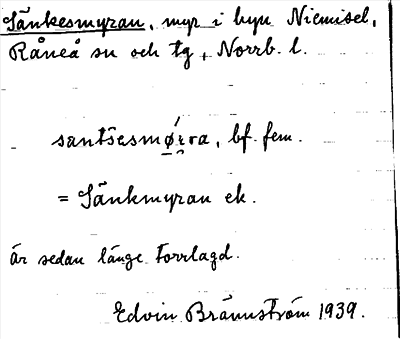 Sänkesmyran, myr i byn Niemisel,
Råneå sn och tg, Norrb. l.
bf. fem.
= Sänkmyran ek.
är sedan länge torrlagd.
Edvin Brännström 1939.